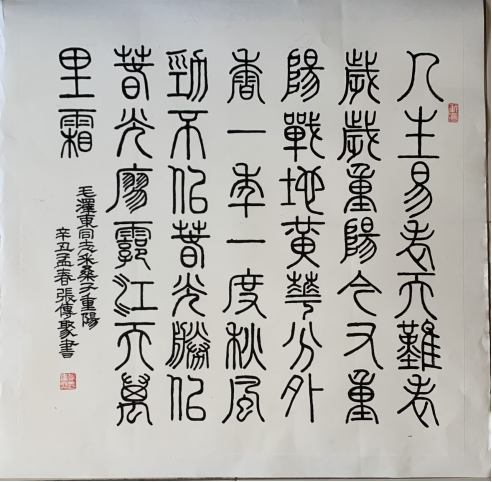 人生易老天難老
歲歲重陽今又重
陽戰地黃華分外
香一年一度秋風
勁不佀春光勝佀
春光廖霩江天萬
里霜
毛澤東同志采桑子重陽
辛丑孟春張傳聚書